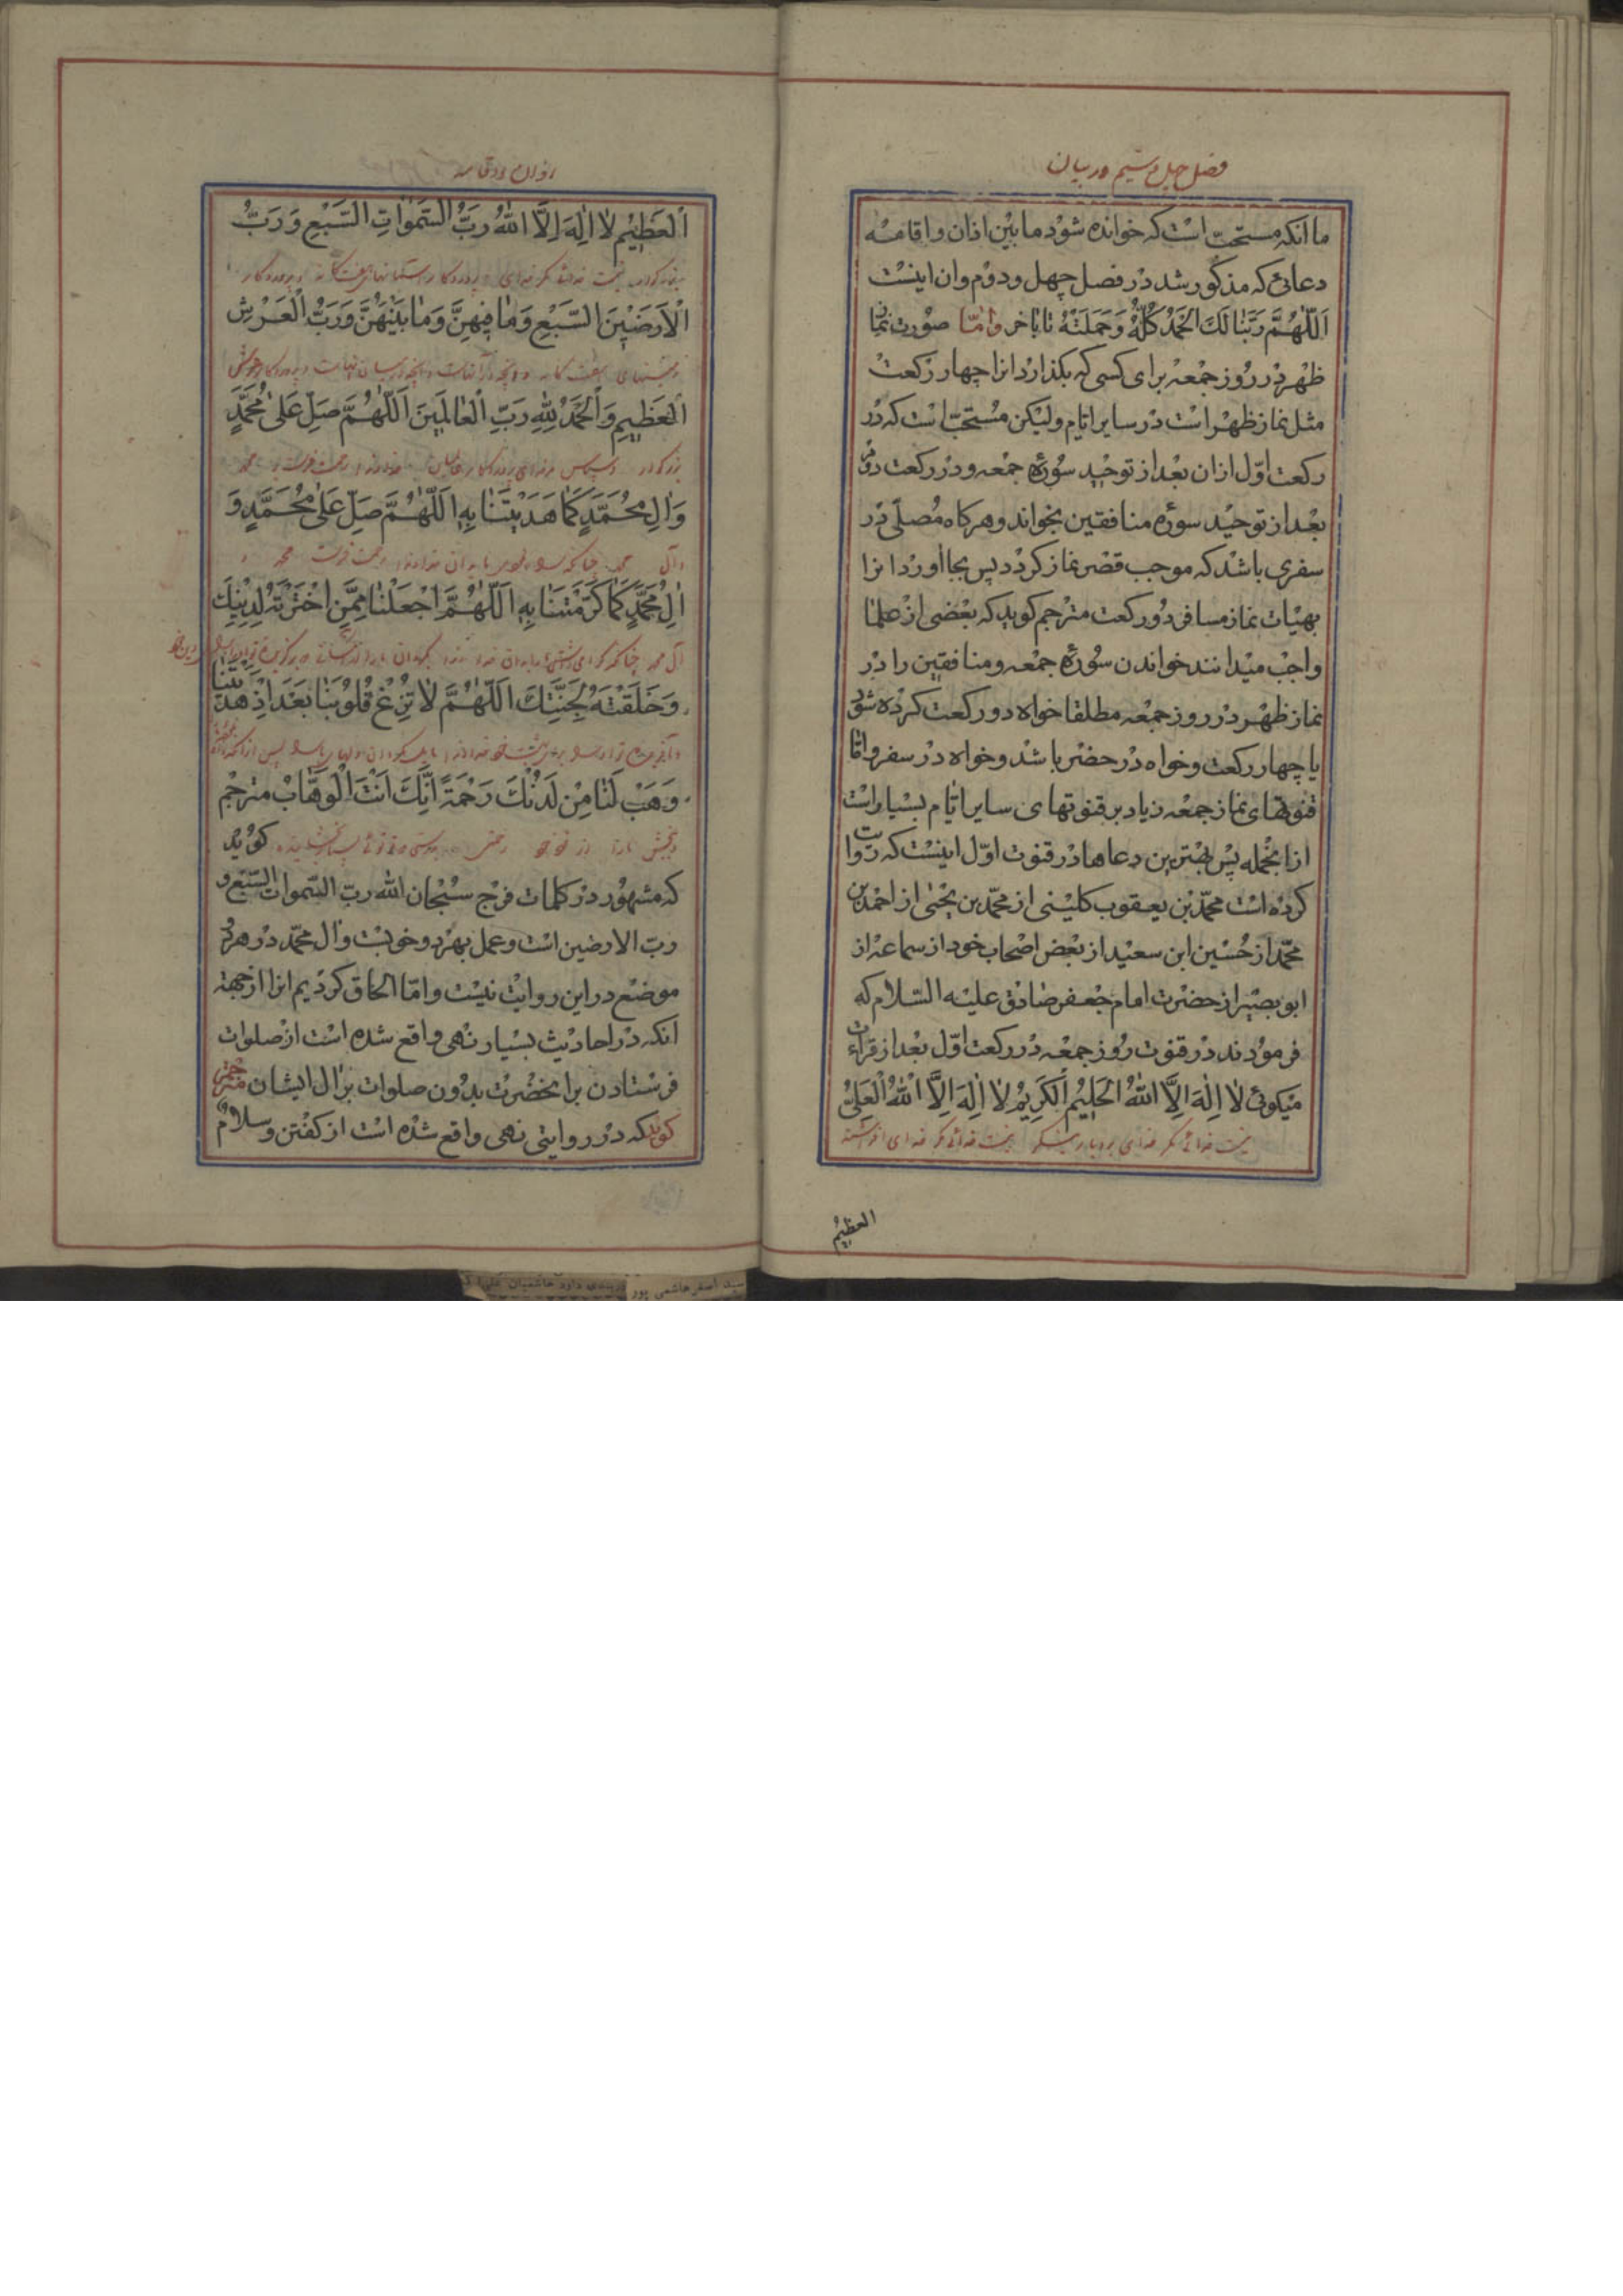 فصل چهل و ششم در بیان
ما انکه مستحبّ است که خوانده شود مابین اذان و اقامه
دعائی که مذکور شد در فصل چهل و دوم وان اینست
اَللّهُمَّ رَبَّنا لَكَ الحَمْدُ كُلُّهُ وَجُمْلَتُهُ تا باخر وامّا صورت نماز
ظهر در روز جمعه برای کسی که بکذارد انرا چهار رکعت
مثل نماز ظهر است در سایر ایّام ولیکن مستحبّ است که در
رکعت اوّل ازان بعد از توحید سوره جمعه و در رکعت دوم
بعد از توحید سوره منافقین بخواند و هرکاه مصلّی در
سفری باشد که موجب قصر نماز کردد پس بجا اورد انرا
بهیات نماز مسافر دو رکعت مترجم کوید که بعضی از علما
واجب میدانند خواندن سوره جمعه و منافقین را در
نماز ظهر در روز جمعه مطلقا خواه دو رکعت کرده شود
یا چهار رکعت و خواه در حضر باشد و خواه در سفر وامّا
قنوتهای نماز جمعه زیاد بر قنوتهای سایر ایّام بسیار است
ازانجمله پس بهترین دعاها در قنوت اوّل اینست که روایت
کرده است محمّد بن یعقوب کلینی از محمّد بن یحیی از احمد بن
محمّد از حسین ابن سعید از بعض اصحاب خود از سماعه از
ابوبصیر از حضرت امام جعفر صادق علیه السّلام که
فرمودند در قنوت روز جمعه در رکعت اوّل بعد از قراءت
میکوئی لا اِلهَ اِلاَّ اللهُ الحَلِيمُ الكَرِيمُ لا اِلهَ اِلاَّ اللهُ العَلِيُّ
نیست خدائی مکر خدای بردبار نیست خدائی مکر خدای
العظیم
اَلعَظِيمُ لا اِلهَ اِلاَّ اللهُ رَبُّ السَّمواتِ السَّبْعِ وَرَبُّ
نیست خدائی مکر خدای پروردکار آسمانهای هفت کانه و پروردکار
الاَرَضِينَ السَّبْعِ وَما فِيهِنَّ وَما بَيْنَهُنَّ وَرَبُّ العَرْشِ
زمینهای هفت کانه وآنچه در آنهاست وآنچه در میان آنهاست و پروردکار عرش
العَظِيمِ وَالحَمْدُ لِلّهِ رَبِّ العالَمِينَ اَللّهُمَّ صَلِّ عَلى مُحَمَّدٍ
و سپاس مر خدای پروردکار عالمیان خداوندا رحمت فرست بر محمد
وَالِ مُحَمَّدٍ كَما هَدَيْتَنا بِهِ اَللّهُمَّ صَلِّ عَلى مُحَمَّدٍ وَ
وآل محمد چنانکه خداوندا رحمت فرست محمد و
الِ مُحَمَّدٍ كَما كَرَّمْتَنا بِهِ اَللّهُمَّ اجْعَلْنا مِمَّنِ اخْتَرْتَهُ لِدِينِكَ
آل محمد چنانکه
وَخَلَقْتَهُ لِجَنَّتِكَ اَللّهُمَّ لا تُزِغْ قُلُوبَنا بَعْدَ اِذْ هَدَيْتَنا
وَهَبْ لَنا مِنْ لَدُنْكَ رَحْمَةً اِنَّكَ اَنْتَ الوَهّابُ مترجم
کوید
که مشهور در کلمات فرج سبحان الله ربّ السّموات السّبع و
ربّ الارضین است و عمل بهر دو خوبست وال محمّد در هر دو
موضع در این روایت نیست وامّا الحاق کردیم انرا از جهة
انکه در احادیث بسیار نهی واقع شده است از صلوات
فرستادن بر انحضرت بدون صلوات بر ال ایشان مترجم
کوید که در روایتی نهی واقع شده است از کفتن و سلام